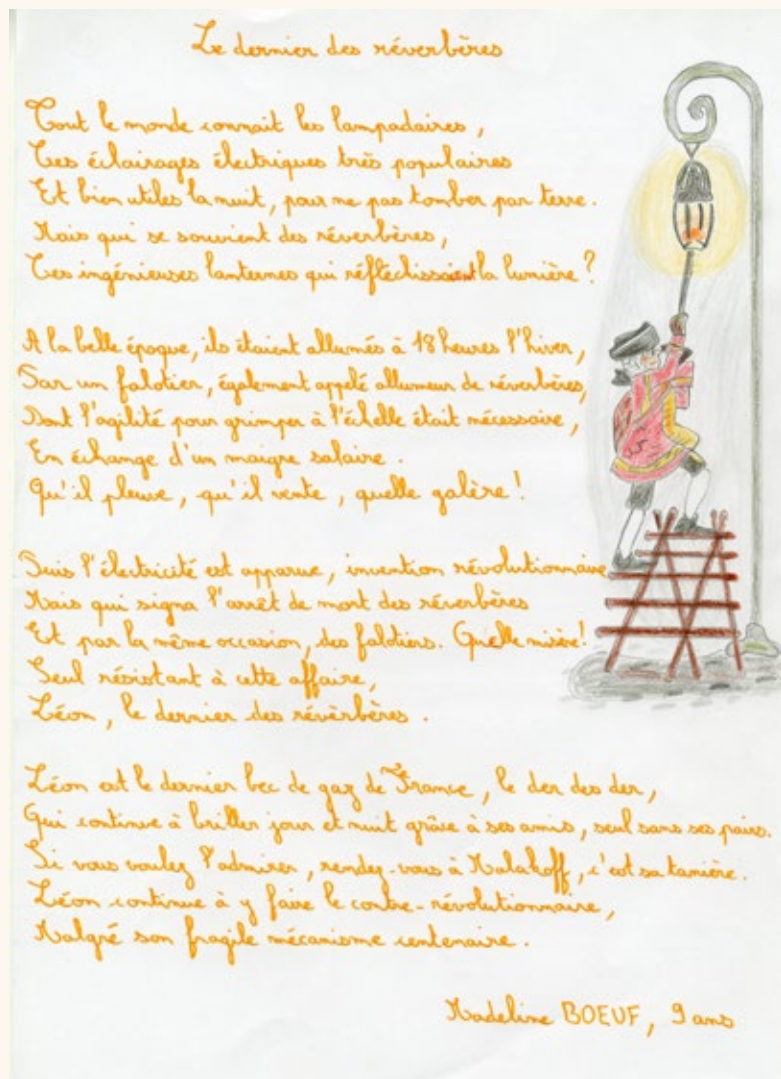 Le dernier des réverbères
Tout le monde connait les lampadaires,
Ces éclairages électriques très populaires
Et bien utiles la nuit, pour ne pas tomber par terre.
Mais qui se souvient des réverbères,
Ces ingénieuses lanternes qui réfléchissaient la lumière ?
A la belle époque, ils étaient allumés à 18 heures l'hiver,
Par un falotier, également appelé allumeur de réverbères,
Dont l'agilité pour grimper à l'échelle était nécessaire,
En échange d'un maigre salaire.
Qu'il pleuve, qu'il vente, quelle galère !
Puis l'électricité est apparue, invention révolutionnaire
Mais qui signa l'arrêt de mort des réverbères
Et par la même occasion, des falotiers. Quelle misère !
Seul résistant à cette affaire,
Léon, le dernier des révèrbères.
Léon est le dernier bec de gaz de France, le der des der,
Qui continue à briller jour et nuit grâce à ses amis, seul sans ses pairs.
Si vous voulez l'admirer, rendez-vous à Malakoff, c'est sa tanière.
Léon continue à y faire le contre-révolutionnaire,
Malgré son fragile mécanisme centenaire.
Madeline BOEUF, 9 ans